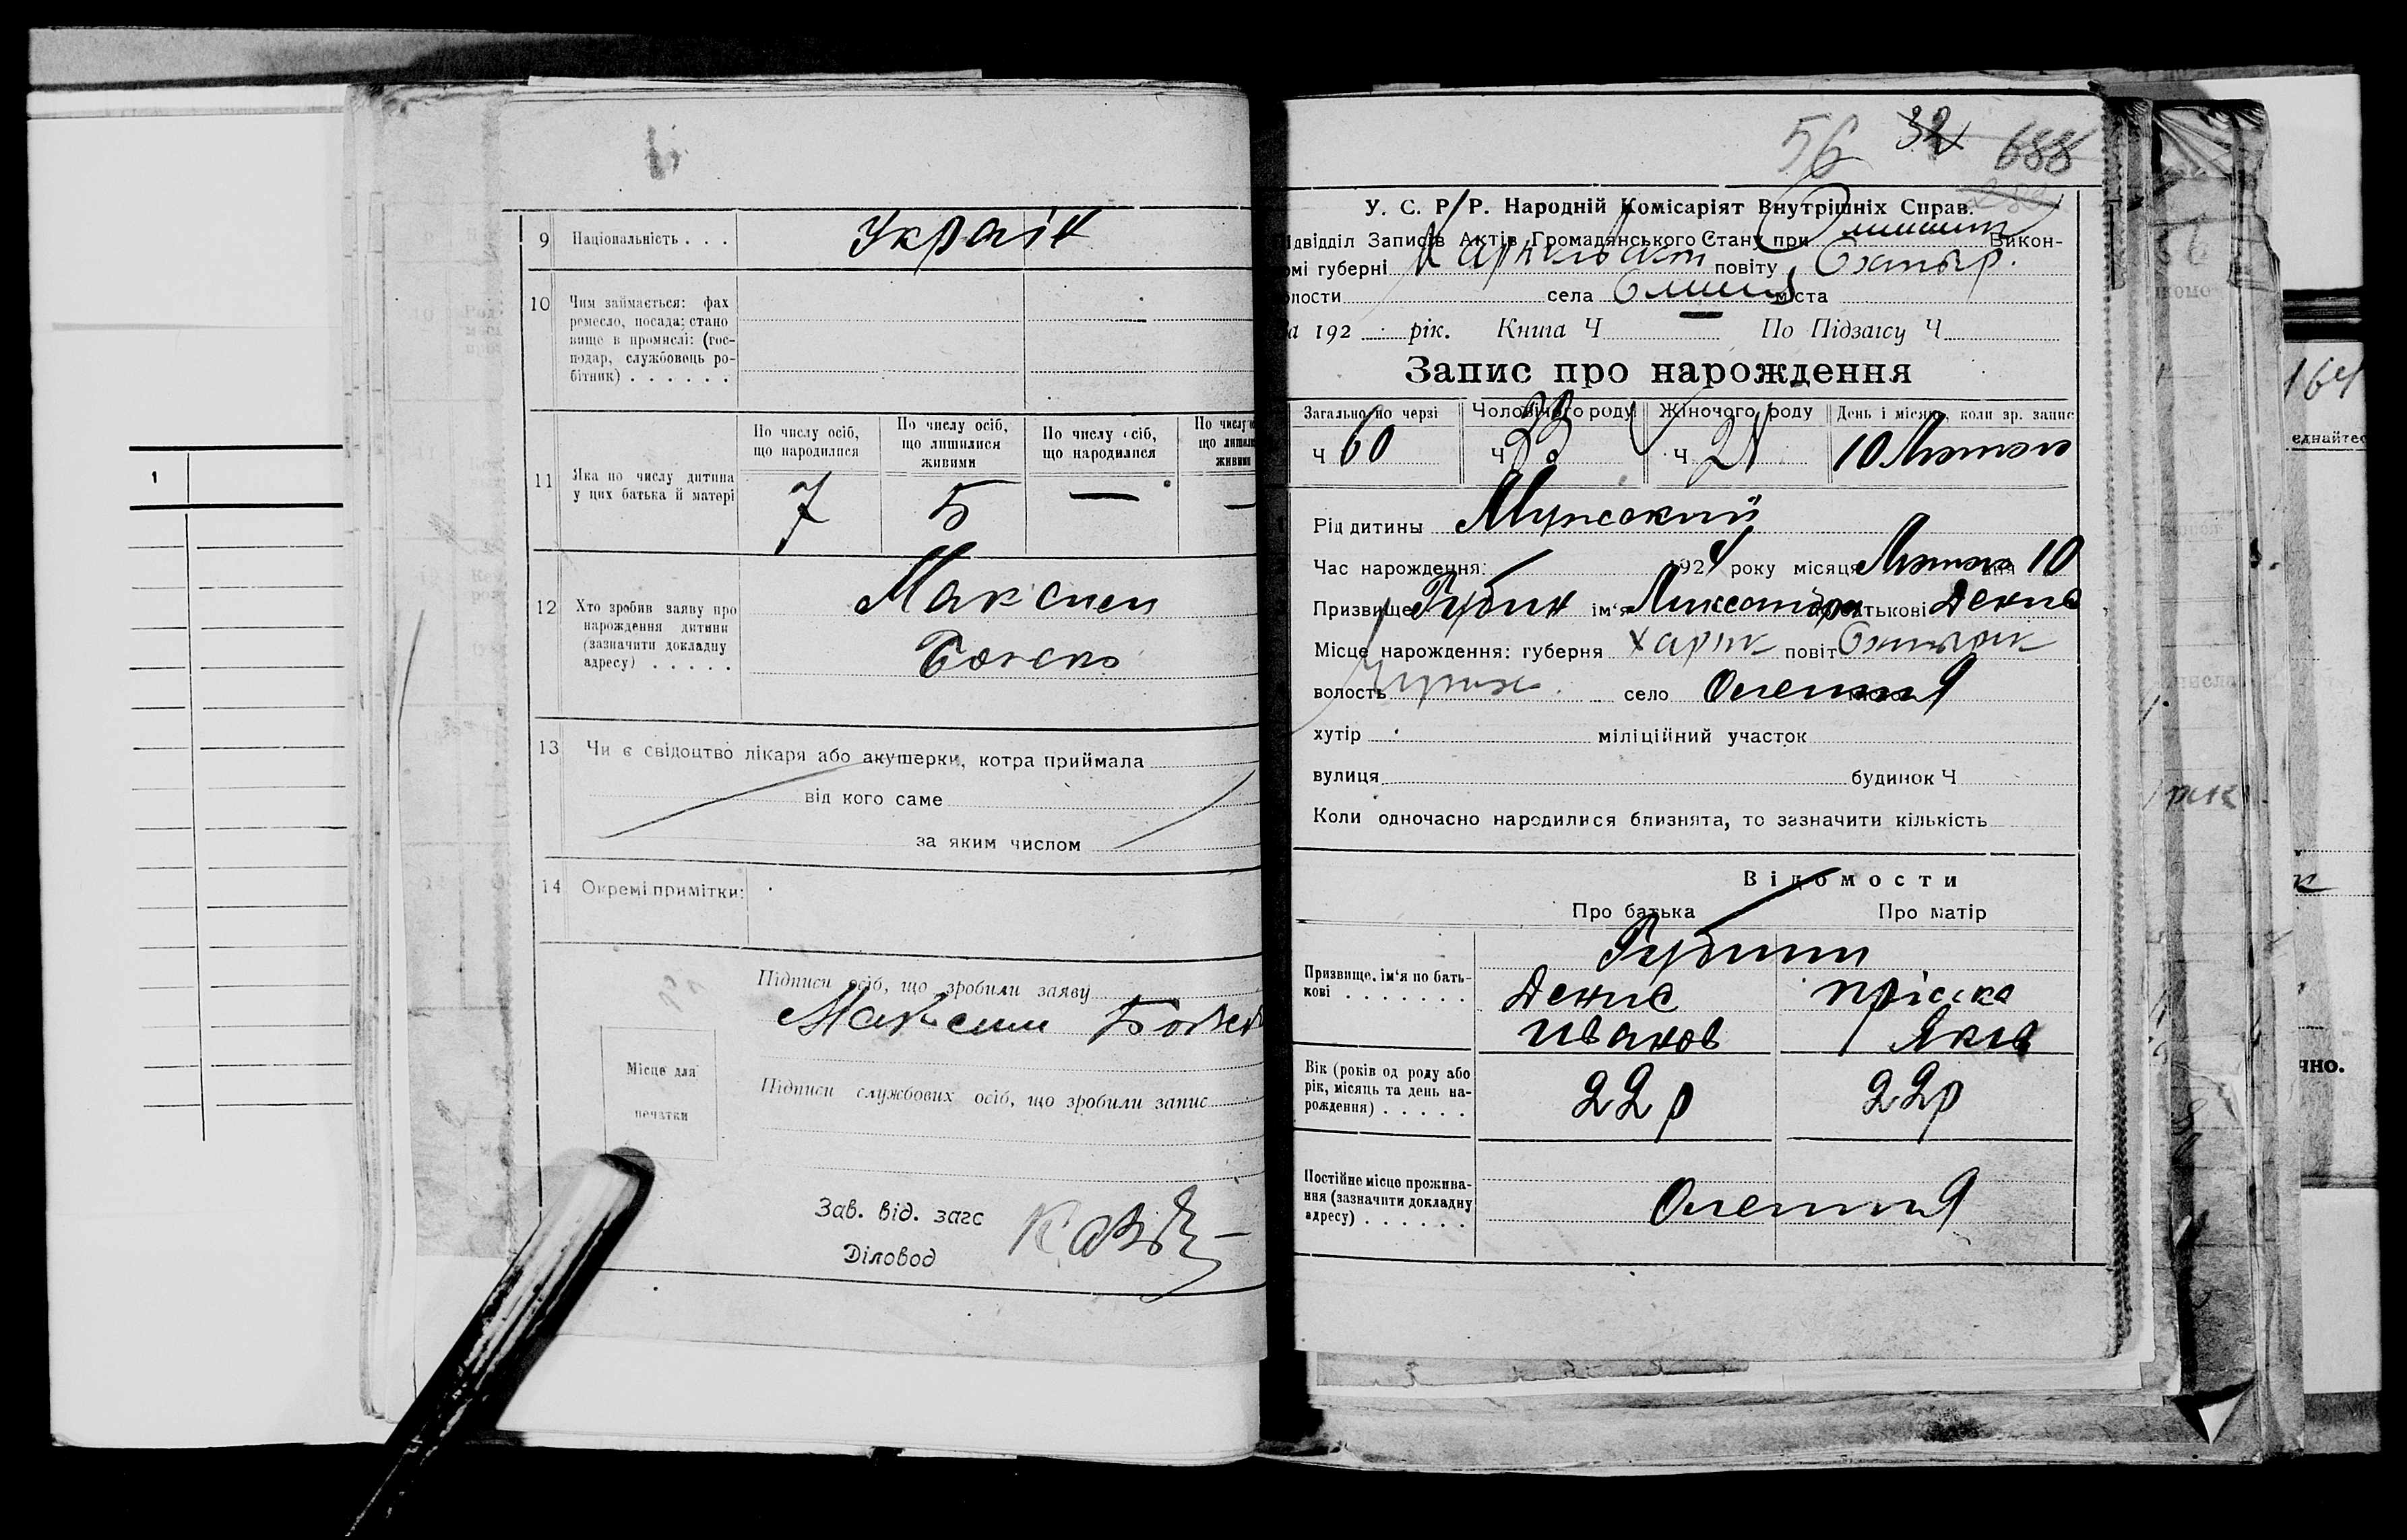 9 Національність . . . Україн
10 Чим займається: фах
ремесло, посада; стано
вище в промислі: (гос-
подар, службовець ро-
бітник) . . . . . .
11 Яка по числу дитина
у цих батька й матері
По числу осіб,
що народилися
По числу осіб,
що лишилися
живими
По числу осіб,
що народилися
По числу
що лишил
живими
7 5 — —
12 Хто зробив заяву про
нарождення дитини
(зазначити докладну
адресу) . . . . .
Максим
Божко
13 Чи є свідоцтво лікаря або акушерки, котра приймала
від кого саме
за яким числом
14 Окремі примітки:
Підписи осіб, що зробили заяву
Максим Божк
Місце для
печатки
Підписи службових осіб, що зробили запис
Зав. від. загс
Діловод
1
56 32 688
У. С. Р. Р. Народній Комісаріят Внутрішніх Справ.
ідвідділ Записів Актів Громадянського Стану при Викон-
омі губерні повіту Охтыр.
олости села міста
а 192 рік. Книга Ч По Підзагсу Ч
Запис про нарождення
Загально по черзі Чоловічого роду Жіночого роду День і місяць, коли зр. запис
Ч 60 Ч 33 Ч 27 10 Лютого
Рід дитины Мужский
Час нарождення: 1924 року місяця Лютого дня 10
Призвище Губин ім'я по батькові Денис
Місце нарождення: губерня Харьк повіт
волость село Олешня
хутір міліційний участок
вулиця будинок Ч
Коли одночасно народилися близнята, то зазначити кількість
Відомости
Про батька Про матір
Призвище, ім'я по бать-
кові . . . . . . .
Губины
Денис Пріська
Иванов Яков
Вік (років од роду або
рік, місяць та день на-
рождення) . . . . .
22 р 22 р
Постійне місце прожива-
ння (зазначити докладну
адресу) . . . . . .
Олешня
164
еднайтес
чно.